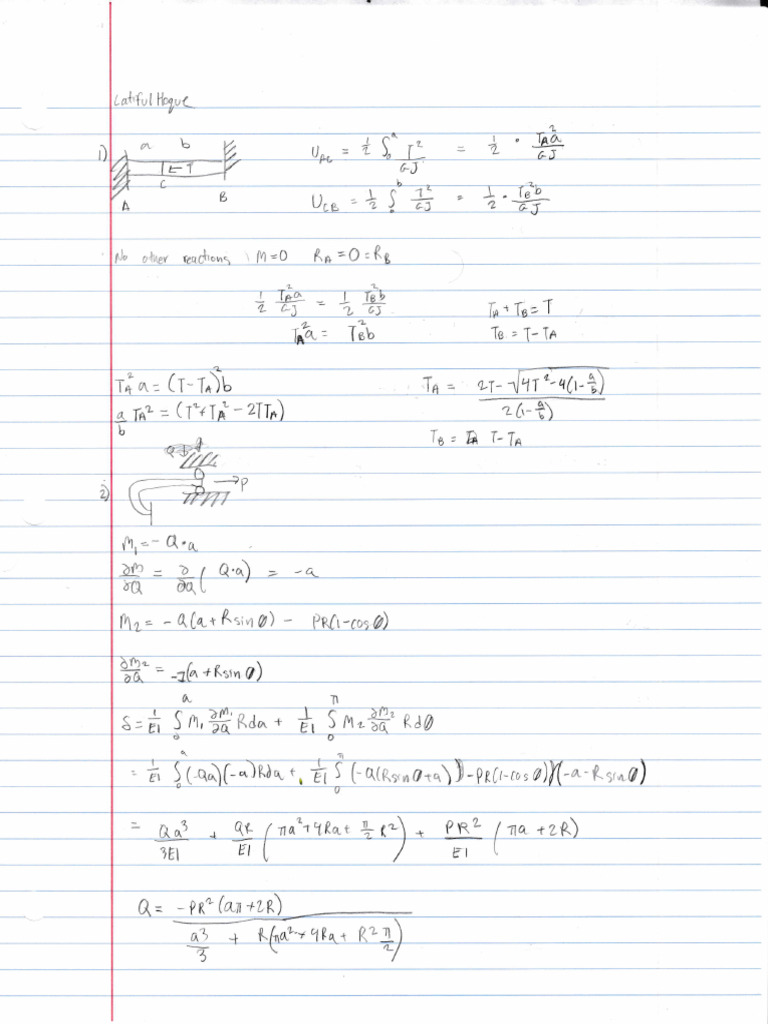 Latiful Hoque
1)
a b
←T
C
A B
U_AC = 1/2 ∫_0^a T²/GJ = 1/2 · T_A²a/GJ
U_CB = 1/2 ∫_0^b T²/GJ = 1/2 · T_B²b/GJ
No other reactions, M=0 R_A=0=R_B
1/2 T_A²a/GJ = 1/2 T_B²b/GJ
T_A²a = T_B²b
T_A+T_B=T
T_B=T-T_A
T_A²a=(T-T_A)²b
a/b T_A²=(T²+T_A²-2TT_A)
T_A = (2T-√(4T²-4(1-a/b)))/(2(1-a/b))
T_B= T-T_A
2)
→P
M₁=-Q·a
∂M/∂Q = ∂/∂Q(Q·a) = -a
M₂=-Q(a+Rsinθ)- PR(1-cosθ)
∂M₂/∂Q = -1(a+Rsinθ)
δ=1/EI ∫_0^a M₁ ∂M₁/∂Q Rda + 1/EI ∫_0^π M₂ ∂M₂/∂Q Rdθ
=1/EI ∫_0^a (-Qa)(-a)Rda + 1/EI ∫_0^π (-Q(Rsinθ+a))-PR(1-cosθ))(-a-Rsinθ)
= Qa³/3EI + QR/EI (πa²+4Ra+π/2 R²) + PR²/EI (πa+2R)
Q= -PR²(aπ+2R)/(a³/3 + R(πa²+4Ra+R²π/2))